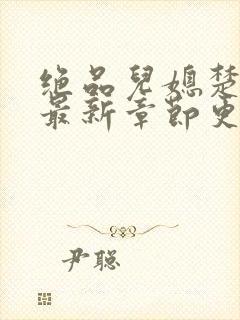 绝品儿媳楚
最新章节更
尹聪